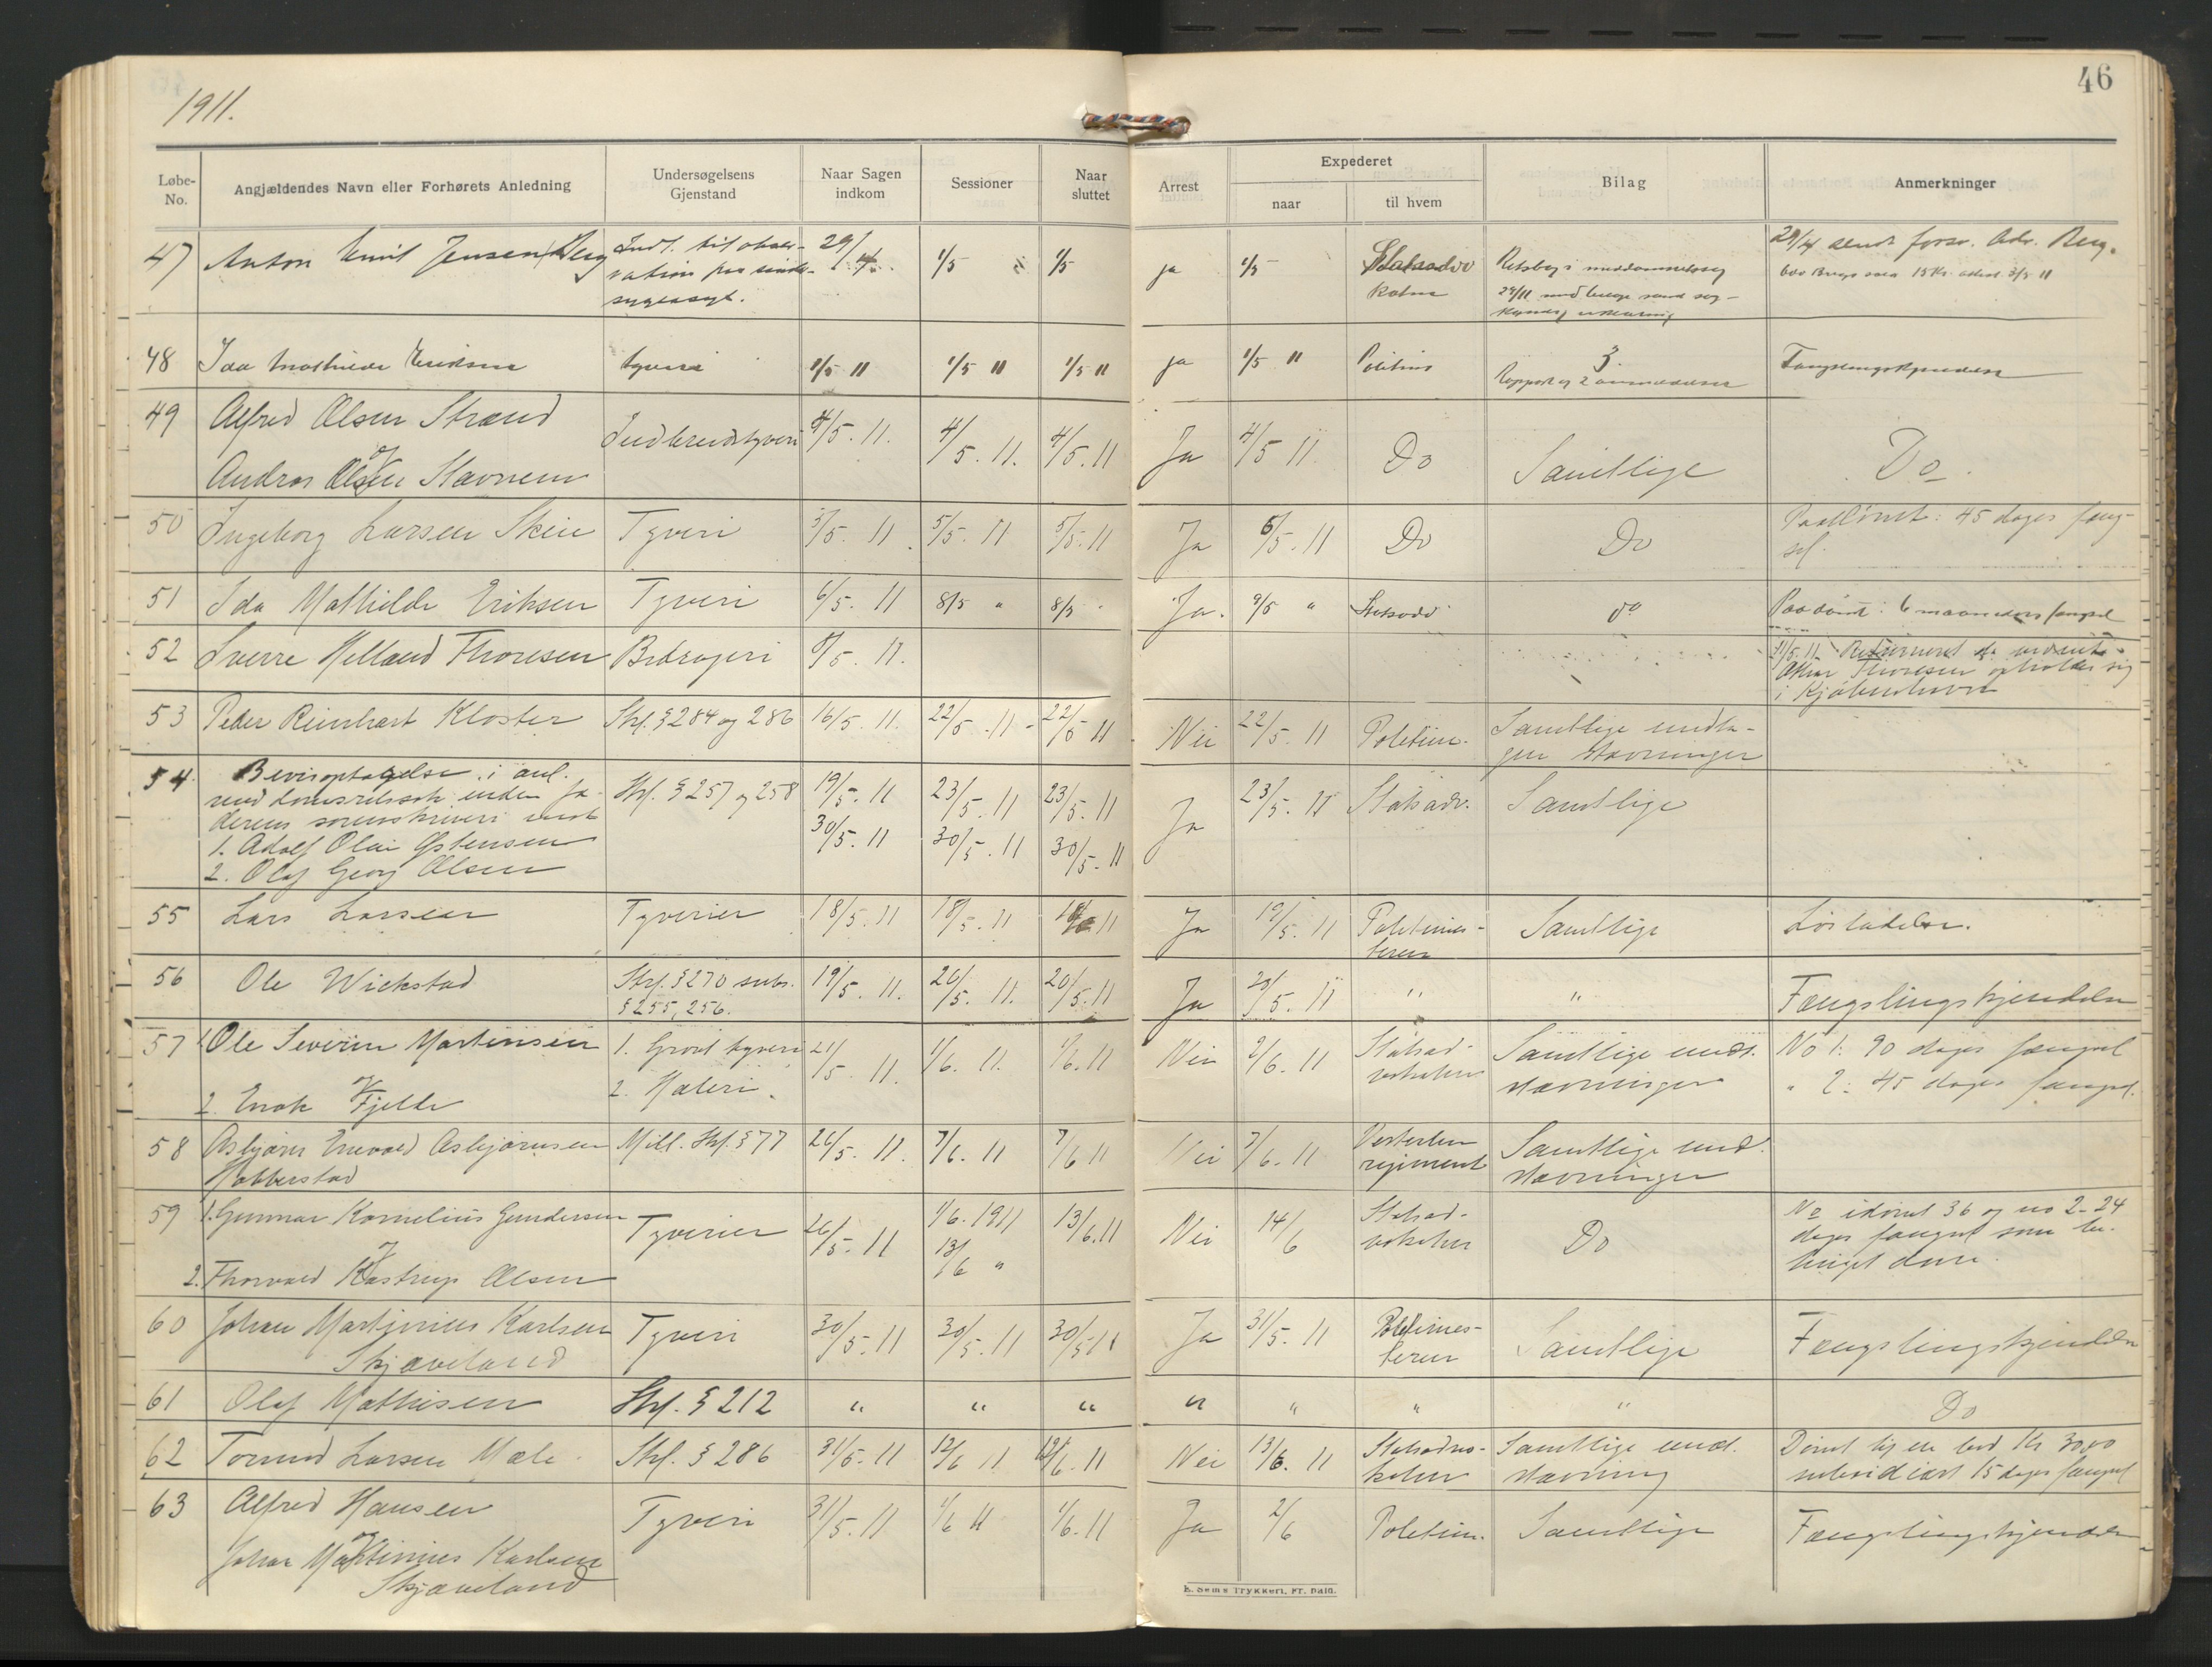 1911.
46
Løbe-No.
Angjældendes Navn eller Forhørets Anledning
Undersøgelsens Gjenstand
Naar Sagen indkom
Sessioner
Naar sluttet
Arrest
Expederet
naar
til hvem
Bilag
Anmerkninger
47 Anton Emil Jensen Berg Indl. til obser- 29/4 1/5 1/5 ja 1/5 Statsadvo 29/4 sendt forsv. Adv. Berg.
vation paa sinds- katen
sygeasyl.
48 Ida Mathilde Eriksen tyveri 1/5 11 1/5 11 1/5 11 ja 1/5 11 Politim 3. Fængslingskjendelse
Rapport og 2 anmeldelser
49 Alfred Olsen Strand Indbrudstyveri 4/5. 11. 4/5. 11. 4/5. 11 Ja 4/5 11. Do Samtlige Do.
og
Andreas Olsen Stavnem
50 Ingeborg Larsen Skeie Tyveri 5/5. 11. 5/5. 11 5/5. 11 Ja 6/5. 11 Do Do Paadømt: 45 dages fæng-
sel.
51 Ida Mathilde Eriksen Tyveri 6/5. 11 8/5 " 8/5 " Ja. 9/5 " Statsadv do Paadømt: 6 maaneders fængsel
52 Sverre Helland Thoresen Bedrageri 8/5. 11. Returneret da
Thoresen opholder sig
i Kjøbenhavn
53 Peder Reinhart Kloster Strl. § 284 og 286 16/5. 11. 22/5. 11 22/5 11 Nei 22/5. 11 Politim. Samtlige undta-
gen stævninger
54 Bevisoptagelse i anl. Strl. § 257 og 258 19/5. 11 23/5. 11 23/5. 11 Ja 23/5. 11 Statsadv. Samtlige
med domsretssak inden Jæ-
derens sorenskriveri mot 30/5. 11 30/5. 11 30/5. 11
1. Adolf Olai Østensen
2. Olaf Georg Olsen
55 Lars Larsen Tyverier 18/5. 11 18/5. 11 Ja 19/5. 11 Politimes- Samtlige Løsladelse.
teren
56 Ole Wickstad Strl. § 270 subs. 19/5. 11. 20/5. 11. 20/5. 11 Ja 20/5. 11 " " Fængslingskjendelse
§ 255, 256.
57 1. Ole Severin Martinsen 1. Grovt tyveri 21/5. 11. 1/6. 11. 1/6. 11 Nei 2/6. 11 Statsad- Samtlige undt. No 1: 90 dages fængsel
og 2. Hæleri. vokaten stævninger " 2: 45 dages fængsel.
2. Enok Fjelde
58 Asbjørn Enevald Asbjørnsen Mill. Strl. § 77 26/5. 11. 7/6. 11 7/6 11 Nei 7/6. 11 Vesterlen Samtlige und.
Hobberstad regiment stævninger
59 1. Gunnar Kornelius Gundersen Tyverier 26/5. 11 1/6. 1911 13/6. 11 Nei 14/6 Statsad- Do No idømt 36 og no 2 - 24
og 13/6 " vokaten dages fængsel som be-
2. Thorvald Kastrup Olsen tinget dom.
60 Johan Martinius Karlsen Tyveri 30/5. 11 30/5. 11 30/5 11 Ja 31/5. 11 Politimes- Samtlige Fængslingskjendelse
Skjæveland teren
61 Olaf Mathisen Strl. § 212 " " " " " " " Do
62 Tormod Larsen Mæle. Strl. § 286 31/5. 11 12/6 11 12/6. 11 Nei 13/6. 11 Statsadvo- Samtlige und. Dømt til en bod Kr 30.00
katen stævning subsidiært 15 dages fængsel
63 Alfred Hansen Tyveri 31/5. 11 1/6 11 1/6. 11 Ja 2/6 Politim. Samtlige Fængslingskjendelse
og
Johan Martinius Karlsen
Skjæveland
E. Sems Trykkeri, Fr.hald.